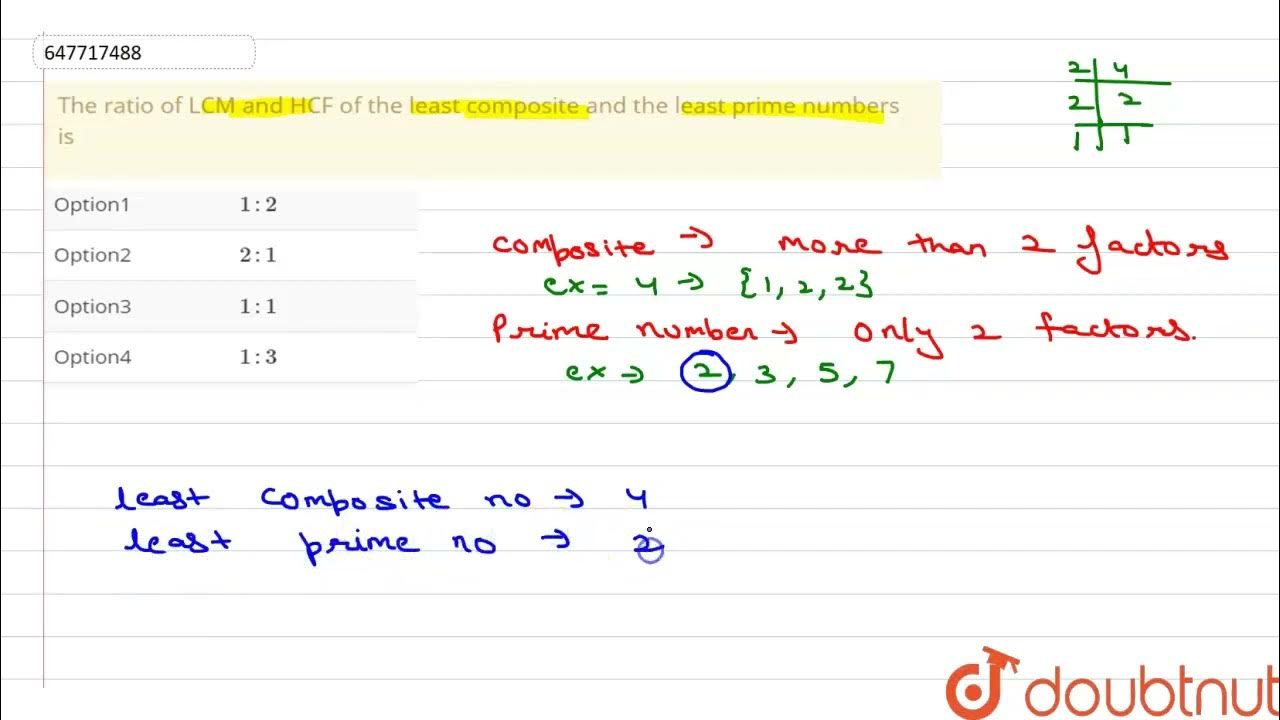 647717488
The ratio of LCM and HCF of the least composite and the least prime numbers
is
Option1 1 : 2
Option2 2 : 1
Option3 1 : 1
Option4 1 : 3
2 4
2 2
1 1
composite → more than 2 factors
ex = 4 → {1, 2, 2}
Prime number → only 2 factors.
ex → 2, 3, 5, 7
least composite no → 4
least prime no → 2
doubtnut